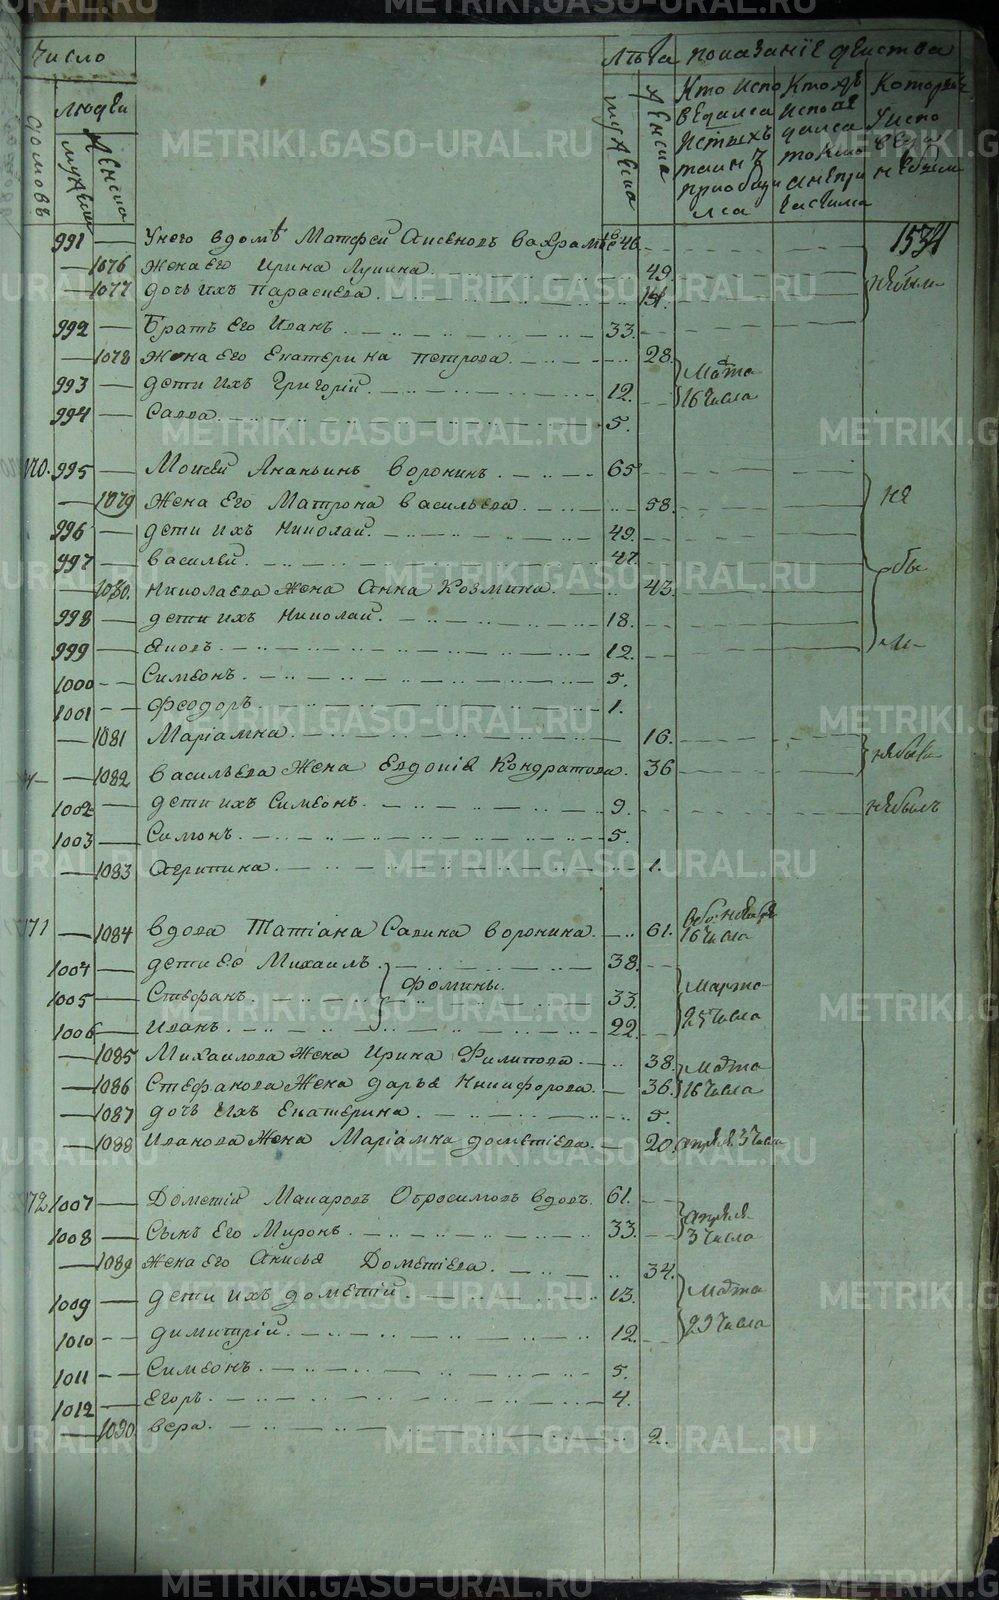 Число Лѣта показанїе действа
домовъ людей мужеска женска мужеска женска Кто испо Кто же Которые
ведался испове У испо
Истыхъ дался веди
таинъ токмо небыли
приобщи анепри
лса частилса
991 — У него в домѣ Матфей Аксеновъ Вахрамѣе 46. 1534
— 1076 жена его Ирина Лукина. 49.
— 1077 дочь ихъ Параскева. 15. небыли
992 — Братъ его Иванъ. 33.
— 1078 жена его Екатерина Петрова. 28.
993 — дети ихъ Григорій. 12. Марта 16 числа
994 — Савва. 5.
170. 995 — Моисей Ананьинъ Воронинъ. 65
— 1079 жена его Матрона Васильева. 58. не
996 — дети ихъ Николай. 49.
997 — Василей. 47. бы
— 1080. Николаева жена Анна Козмина. 43.
998 — дети ихъ Николай. 18.
999 — Яковъ. 12. ли
1000 — Симеонъ. 5.
1001 — Феодоръ. 1.
— 1081 Маріамна. 16.
— 1082 Васильева жена Евдокія Кондратова. 36 небыли
1002 — дети ихъ Симеонъ. 9. небылъ
1003 — Симонъ. 5.
— 1083 Агрипина. 1.
171 — 1084 вдова Татіана Савина Воронина. 61. Февр: 16 числа
1004 — дети ее Михаилъ. 38.
Фомины.
1005 — Стефанъ. 33. Марта
1006 — Иванъ. 22. 25 числа
— 1085 Михаилова жена Ирина Филипова. 38. Марта
— 1086 Стефанова жена Дарья Никифорова. 36. 16 числа
— 1087 дочь ихъ Екатерина. 5.
— 1088 Иванова жена Маріамна Дометіева. 20. апреля 3 числа
172 1007 — Дометій Макаровъ Обросимовъ вдовъ. 61.
1008 — Сынъ его Миронъ. 33. апреля 3 числа
— 1089 жена его Анисья Дометіева. 34.
1009 — дети ихъ Дометій. 13. Марта
1010 — Димитрій. 12. 23 числа
1011 — Симеонъ. 5.
1012 — Егоръ. 4.
— 1090 Вера. 2.
METRIKI.GASO-URAL.RU